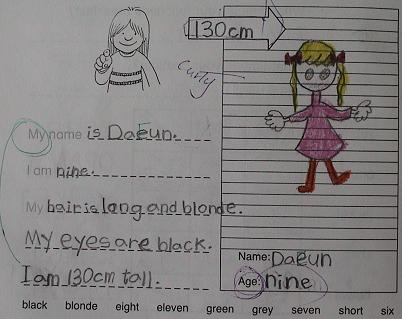 130cm
curly
My name is DaEun.
I am nine.
My hair is long and blonde.
My eyes are black.
I am 130cm tall.
Name: DaEun
Age: nine
black blonde eight eleven green grey seven short six